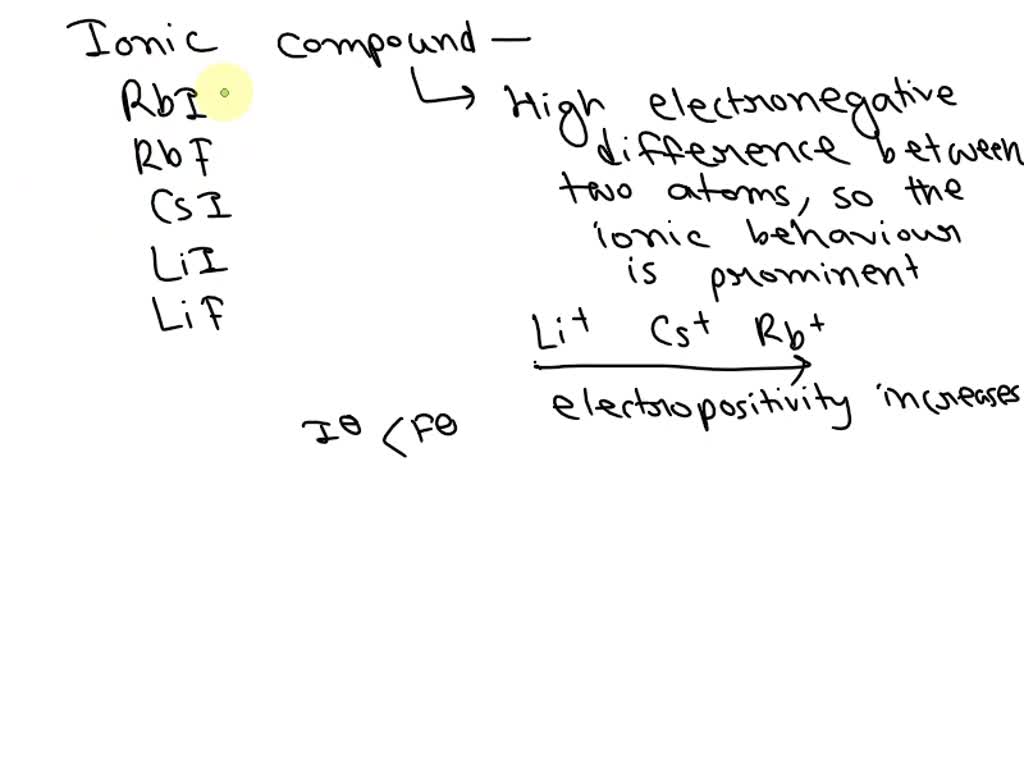 Ionic compound —
RbI
RbF
CsI
LiI
LiF
High electronegative
difference between
two atoms, so the
ionic behaviour
is prominent
Li⁺ Cs⁺ Rb⁺
electropositivity increases
I⊖ < F⊖